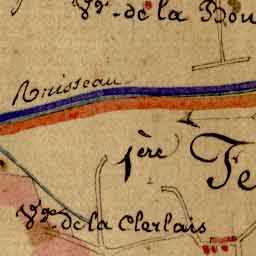 Vge de la Bou
Ruisseau
1ère Fe
Vge de la Clerlais